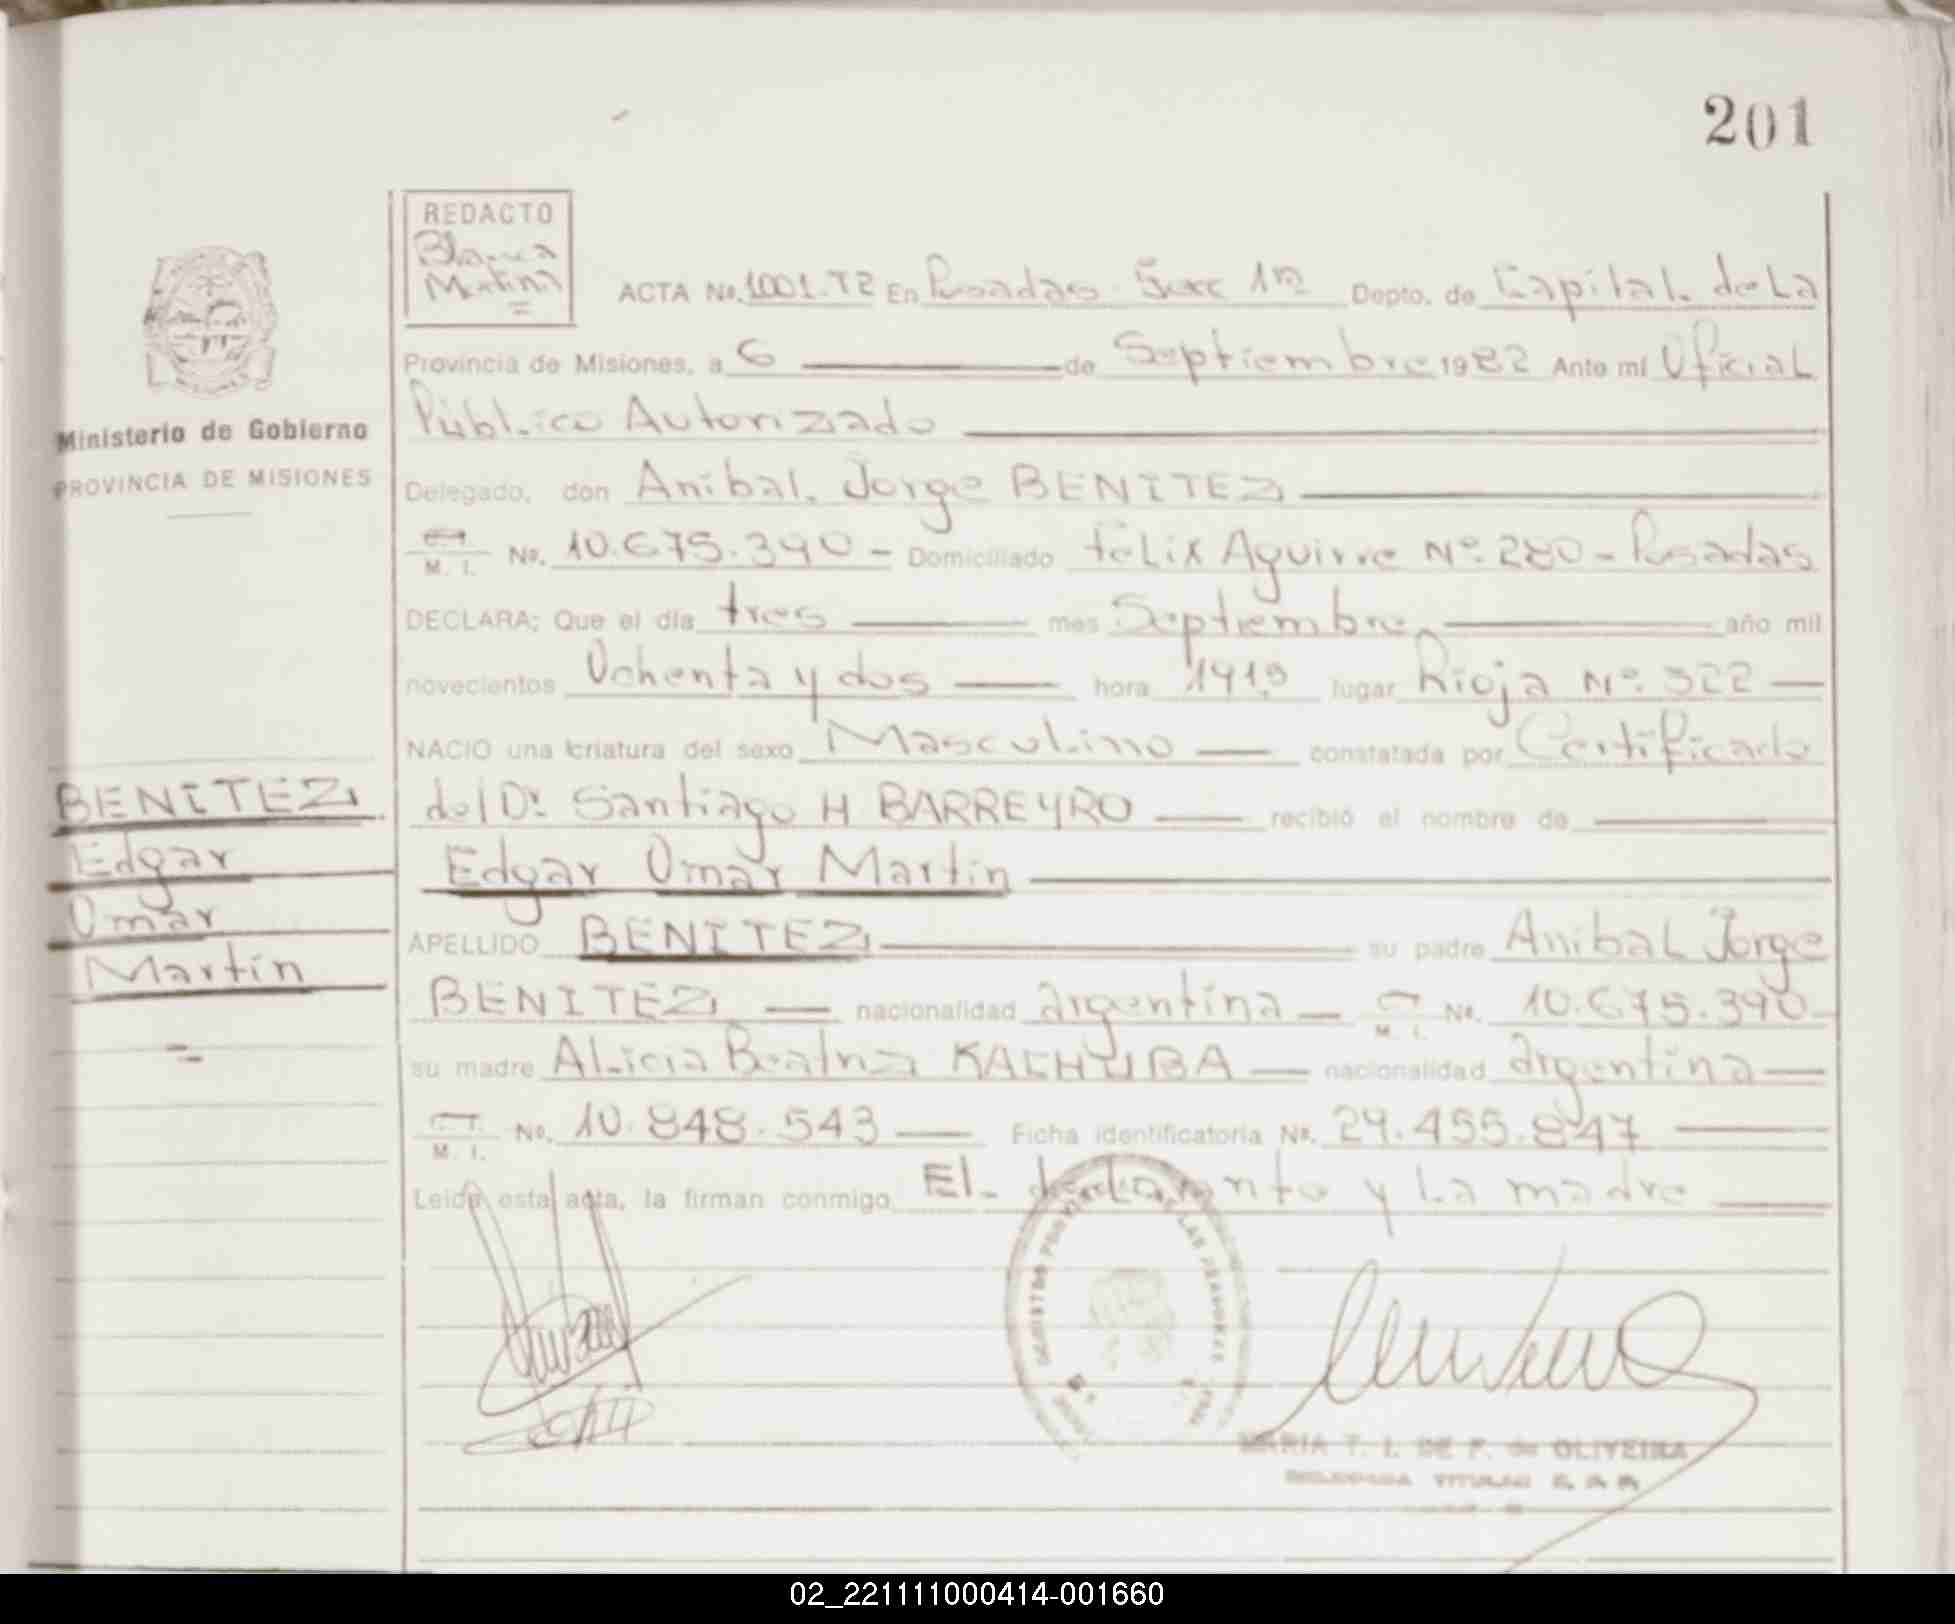 201
REDACTO
Blanca
Martina
ACTA No. 1001.T2 En Posadas Secc 1ra Depto. de Capital. de La
Provincia de Misiones, a 6 de Septiembre 1982 Ante mí Oficial
Ministerio de Gobierno
PROVINCIA DE MISIONES
Público Autorizado
Delegado, don Anibal. Jorge BENITEZ
M. I. No. 10.675.390 - Domiciliado Félix Aguirre Nº 280 - Posadas
DECLARA; Que el día tres mes Septiembre año mil
novecientos Ochenta y dos hora lugar Rioja Nº. 322
NACIO una criatura del sexo Masculino constatada por Certificado
BENITEZ
Edgar
Omar
Martín
del Dr. Santiago H BARREYRO recibió el nombre de
Edgar Omar Martín
APELLIDO BENITEZ su padre Anibal Jorge
BENITEZ nacionalidad argentina M. I. No. 10.675.390
su madre Alicia Beatriz KACHUBA nacionalidad argentina
C. I. M. I. No. 10.848.543 Ficha identificatoria No. 29.455.847
Leída esta acta, la firman conmigo El declarante y La madre
MARIA T. I. DE F. de OLIVEIRA
DELEGADA TITULAR
02_221111000414-001660